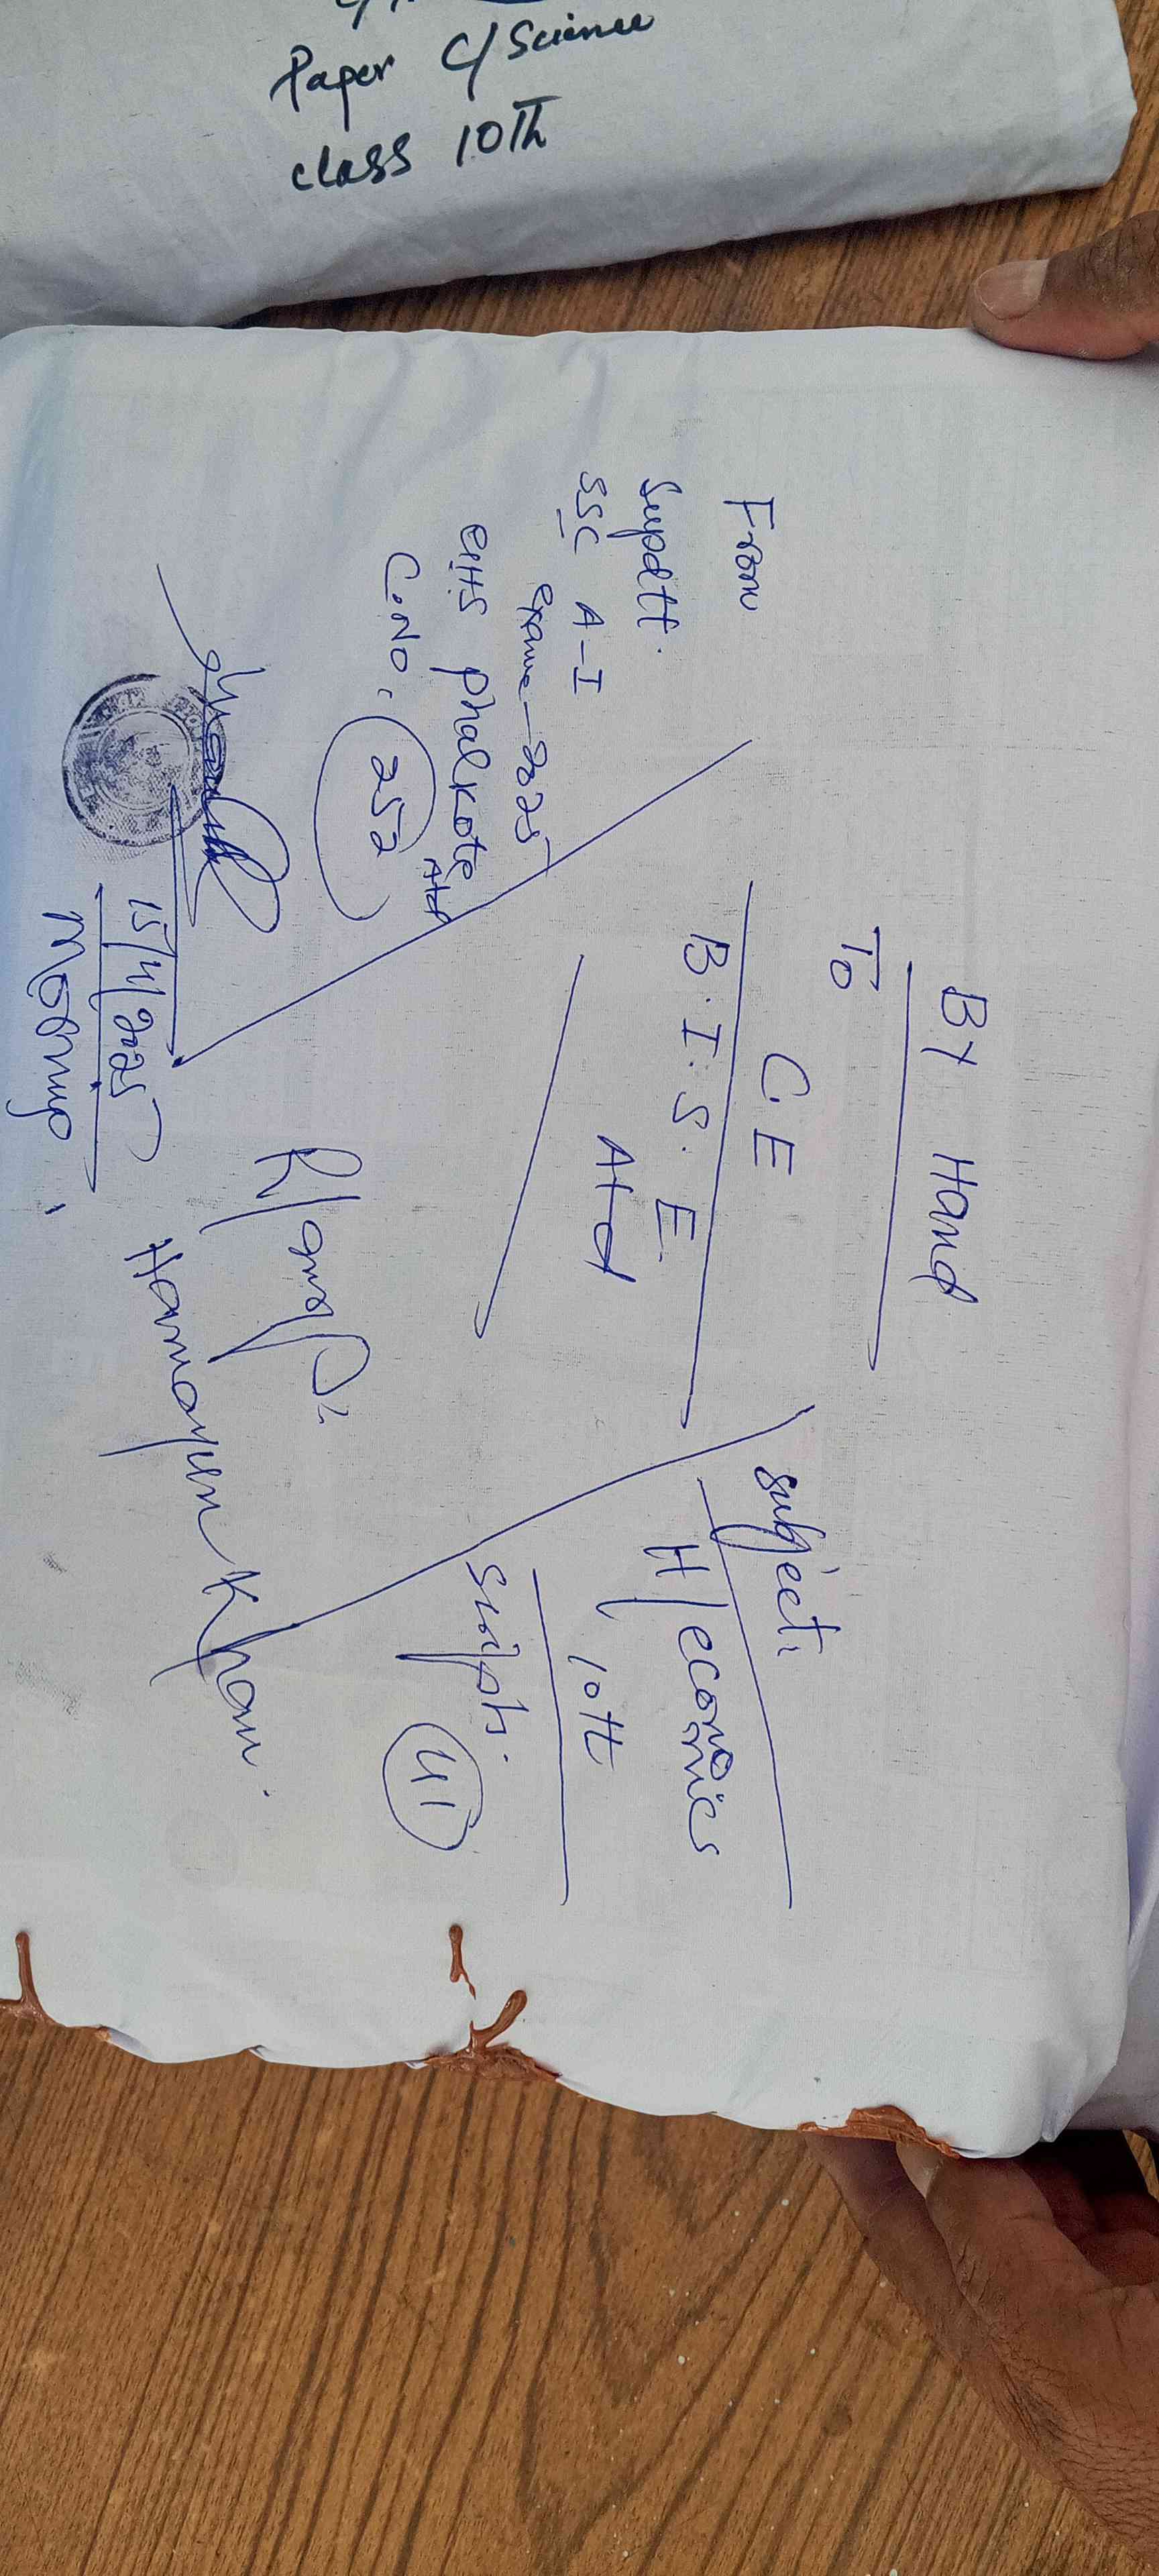 Paper C/Science
class 10Th
By Hand
To
C.E
B.I.S.E
Atd
From
Supdtt.
SSC A-I
Exam-2025
GHS Phalkote
Atd
C.No. 252
15/4/2025
Morning
Subject:
H/economics
10th
Scripts. 41
R/Inspt:
Hamayun Khan.